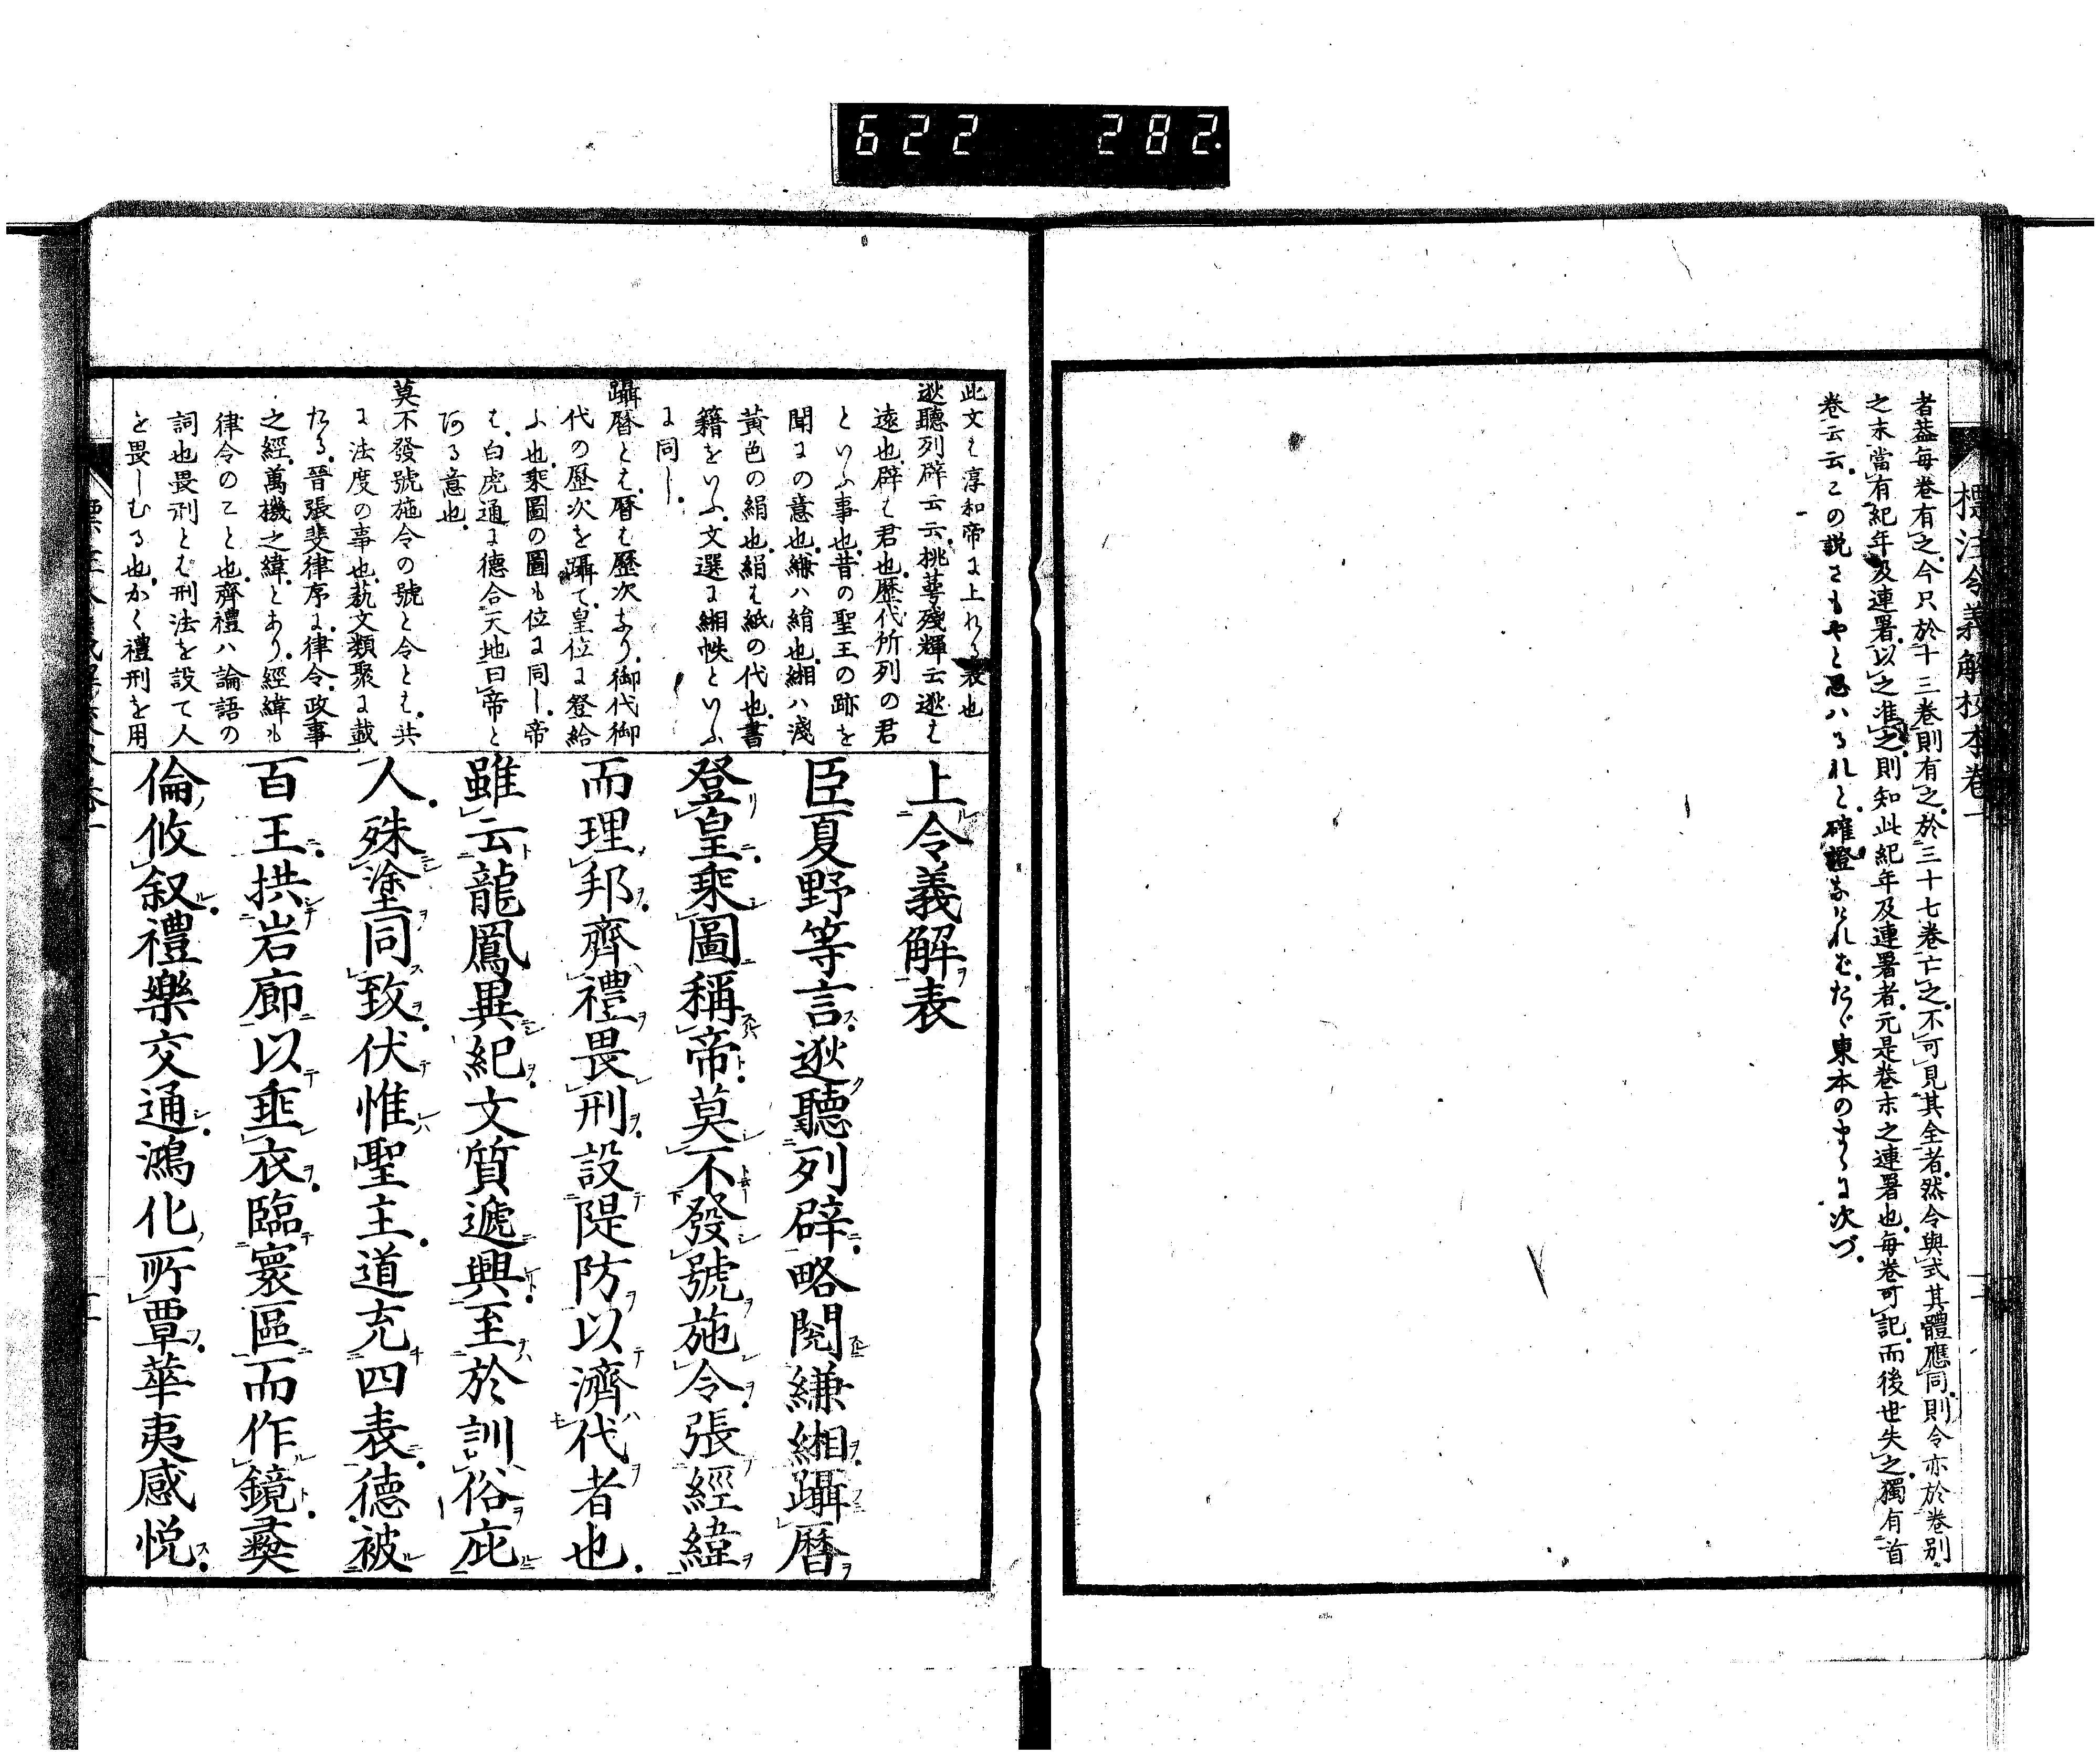 622 282.
標注令義解校本卷一
者葢每卷有之今只於十三卷則有之於三十七卷亡之不可見其全者然令與式其體應同則令亦於卷別
之末當有紀年及連署以之准之則知此紀年及連署者元是卷末之連署也每卷可記而後世失之獨有首
卷云云この説さもやと思ハるれと確證なけれむたゞ東本のまゝに次づ
此文は淳和帝に上れる表也
逖聽列辟云云桃萼殘輝云逖は
遠也辟は君也歷代所列の君
といふ事也昔の聖王の跡を
聞にの意也縑ハ絹也緗ハ淺
黃色の絹也絹は紙の代也書
籍をいふ文選に緗帙といふ
に同し
躡曆とは曆は歷次なり御代御
代の歷次を躡て皇位に登給
ふ也乘圖の圖も位に同し帝
は白虎通に德合天地曰帝と
ある意也
莫不發號施令の號と令とは共
に法度の事也藝文類聚に載
たる晉張斐律序に律令政事
之經萬機之緯とあり經緯も
律令のこと也齊禮ハ論語の
詞也畏刑とは刑法を設て人
を畏しむる也かく禮刑を用
上令義解表
臣夏野等言逖聽列辟略閲縑緗躡曆
登皇乘圖稱帝莫不發號施令張經緯
而理邦齊禮畏刑設隄防以濟代者也
雖云龍鳳異紀文質遞興至於訓俗庇
人殊塗同致伏惟聖主道充四表德被
百王拱岩廊以垂衣臨寰區而作鏡彝
倫攸叙禮樂交通鴻化所覃華夷感悦